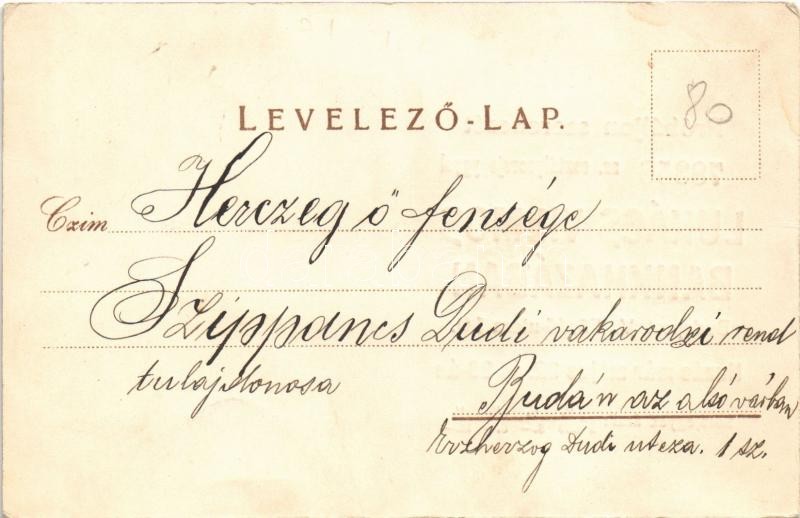 LEVELEZŐ-LAP.
80
Czim Herczeg ő fensége
Szippancs Dudi vakarodzi rend
tulajdonosa
Budán az alsó várban
Erzherzog Dudi utcza. 1 sz.